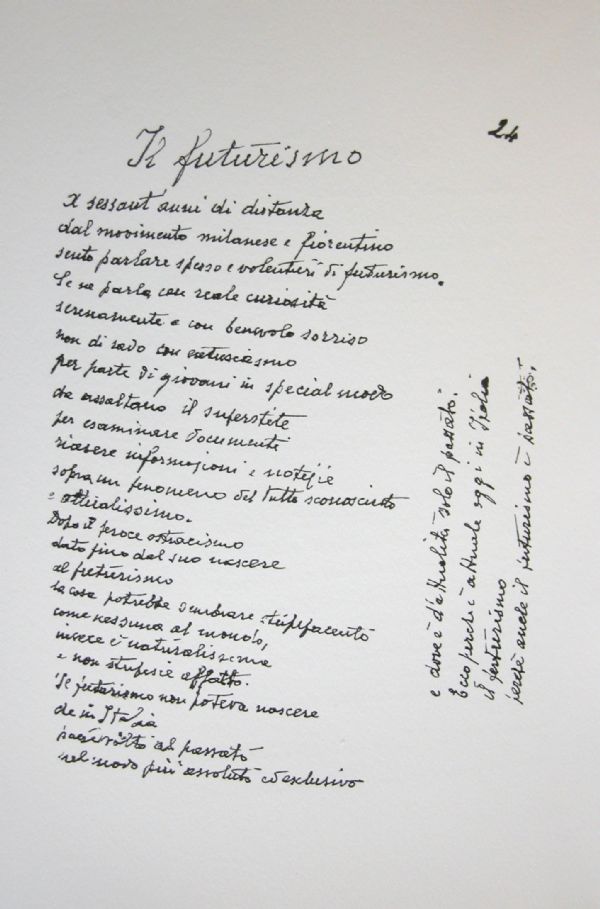 24
Il futurismo
A sessant'anni di distanza
dal movimento milanese e fiorentino
sento parlare spesso e volentieri di futurismo.
Se ne parla con reale curiosità
serenamente e con benevolo sorriso
non di rado con entusiasmo
per parte di giovani in special modo
che assaltano il superstite
per esaminare documenti
ricevere informazioni e notizie
sopra un fenomeno del tutto sconosciuto
e attualissimo.
Dopo il feroce ostracismo
dato fino dal suo nascere
al futurismo
la cosa potrebbe sembrare stupefacente
come nessuna al mondo,
invece è naturalissima
e non stupisce affatto.
Il futurismo non poteva nascere
che in Italia
paese volto al passato
nel modo più assoluto ed esclusivo
e dove è d'attualità solo il passato.
Ecco perché è attuale oggi in Italia
il futurismo
perché anche il futurismo è passato.